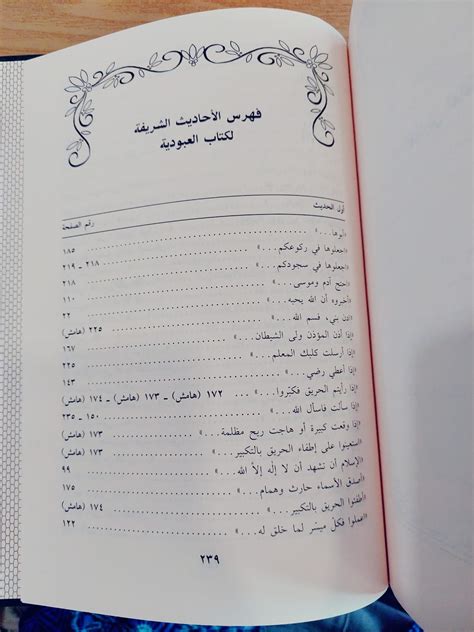 فهرس الأحاديث الشريفة
لكتاب العبودية
أول الحديث رقم الصفحة
«اجعلوها في ركوعكم...» ٢١٨ ـ ٢١٩
«اجعلوها في سجودكم...» ٢١٨
«احتج آدم وموسى...» ١١٠
«أخبروه أن الله يحبه...» ٢٢
«ادن بني، فسم الله...» ٢٢٥ (هامش)
«إذا أذن المؤذن ولى الشيطان...» ١٦٧
«إذا أرسلت كلبك المعلم...» ٢٢٥
«إذا أعطي رضي...» ١٤٣
«إذا رأيتم الحريق فكبّروا...» ١٧٢ (هامش) ـ ١٧٣ (هامش) ـ ١٧٤ (هامش)
«إذا سألت فاسأل الله...» ١٥٠ ـ ٢٣٥
«إذا وقعت كبيرة أو هاجت ريح مظلمة...» ١٧٣ (هامش)
«استعينوا على إطفاء الحريق بالتكبير...» ١٧٣ (هامش)
«الإسلام أن تشهد أن لا إله إلاّ الله...» ٩٩
«أصدق الأسماء حارث وهمام...» ١٧٥
«أطفئوا الحريق بالتكبير...» ١٧٤ (هامش)
«اعملوا فكلّ ميسّر لما خلق له...» ١٢٢
٢٣٩